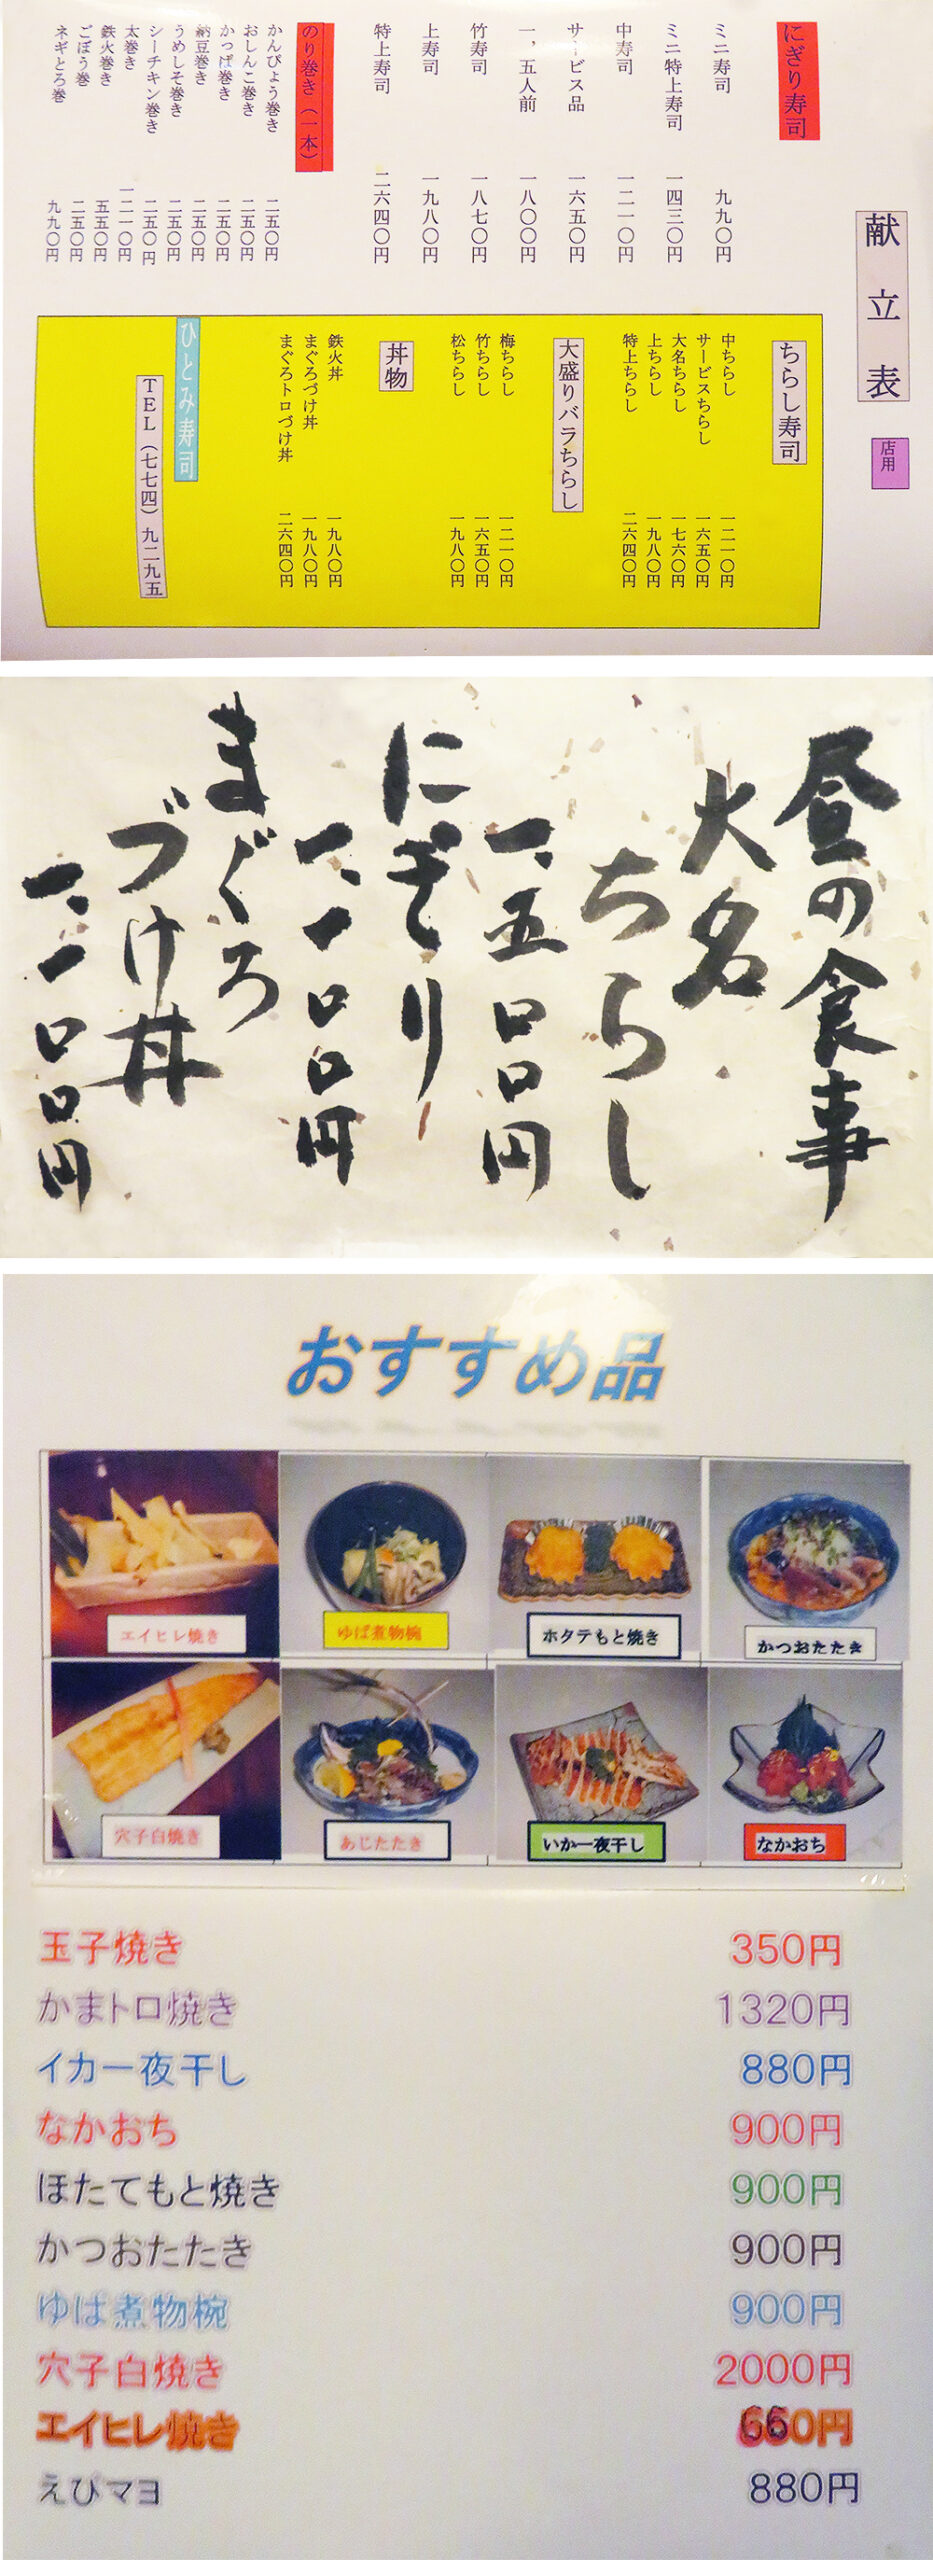 献立表
店用
にぎり寿司
ミニ寿司 九九〇円
ミニ特上寿司 一四三〇円
中寿司 一二一〇円
サービス品 一六五〇円
一，五人前 一八〇〇円
竹寿司 一八七〇円
上寿司 一九八〇円
特上寿司 二六四〇円
のり巻き（一本）
かんぴょう巻き 二五〇円
おしんこ巻き 二五〇円
かっぱ巻き 二五〇円
納豆巻き 二五〇円
うめしそ巻き 二五〇円
シーチキン巻き 二五〇円
太巻き 一二一〇円
鉄火巻き 五五〇円
ごぼう巻 二五〇円
ネギとろ巻 九九〇円
ちらし寿司
中ちらし 一二一〇円
サービスちらし 一六五〇円
大名ちらし 一七六〇円
上ちらし 一九八〇円
特上ちらし 二六四〇円
大盛りバラちらし
梅ちらし 一二一〇円
竹ちらし 一六五〇円
松ちらし 一九八〇円
丼物
鉄火丼 一九八〇円
まぐろづけ丼 一九八〇円
まぐろトロづけ丼 二六四〇円
ひとみ寿司
TEL（七七四）九二九五
昼の食事
大名
ちらし
一、五〇〇円
にぎり
一、一〇〇円
まぐろ
づけ丼
一、一〇〇円
おすすめ品
エイヒレ焼き
ゆば煮物椀
ホタテもと焼き
かつおたたき
穴子白焼き
あじたたき
いか一夜干し
なかおち
玉子焼き 350円
かまトロ焼き 1320円
イカ一夜干し 880円
なかおち 900円
ほたてもと焼き 900円
かつおたたき 900円
ゆば煮物椀 900円
穴子白焼き 2000円
エイヒレ焼き 660円
えびマヨ 880円